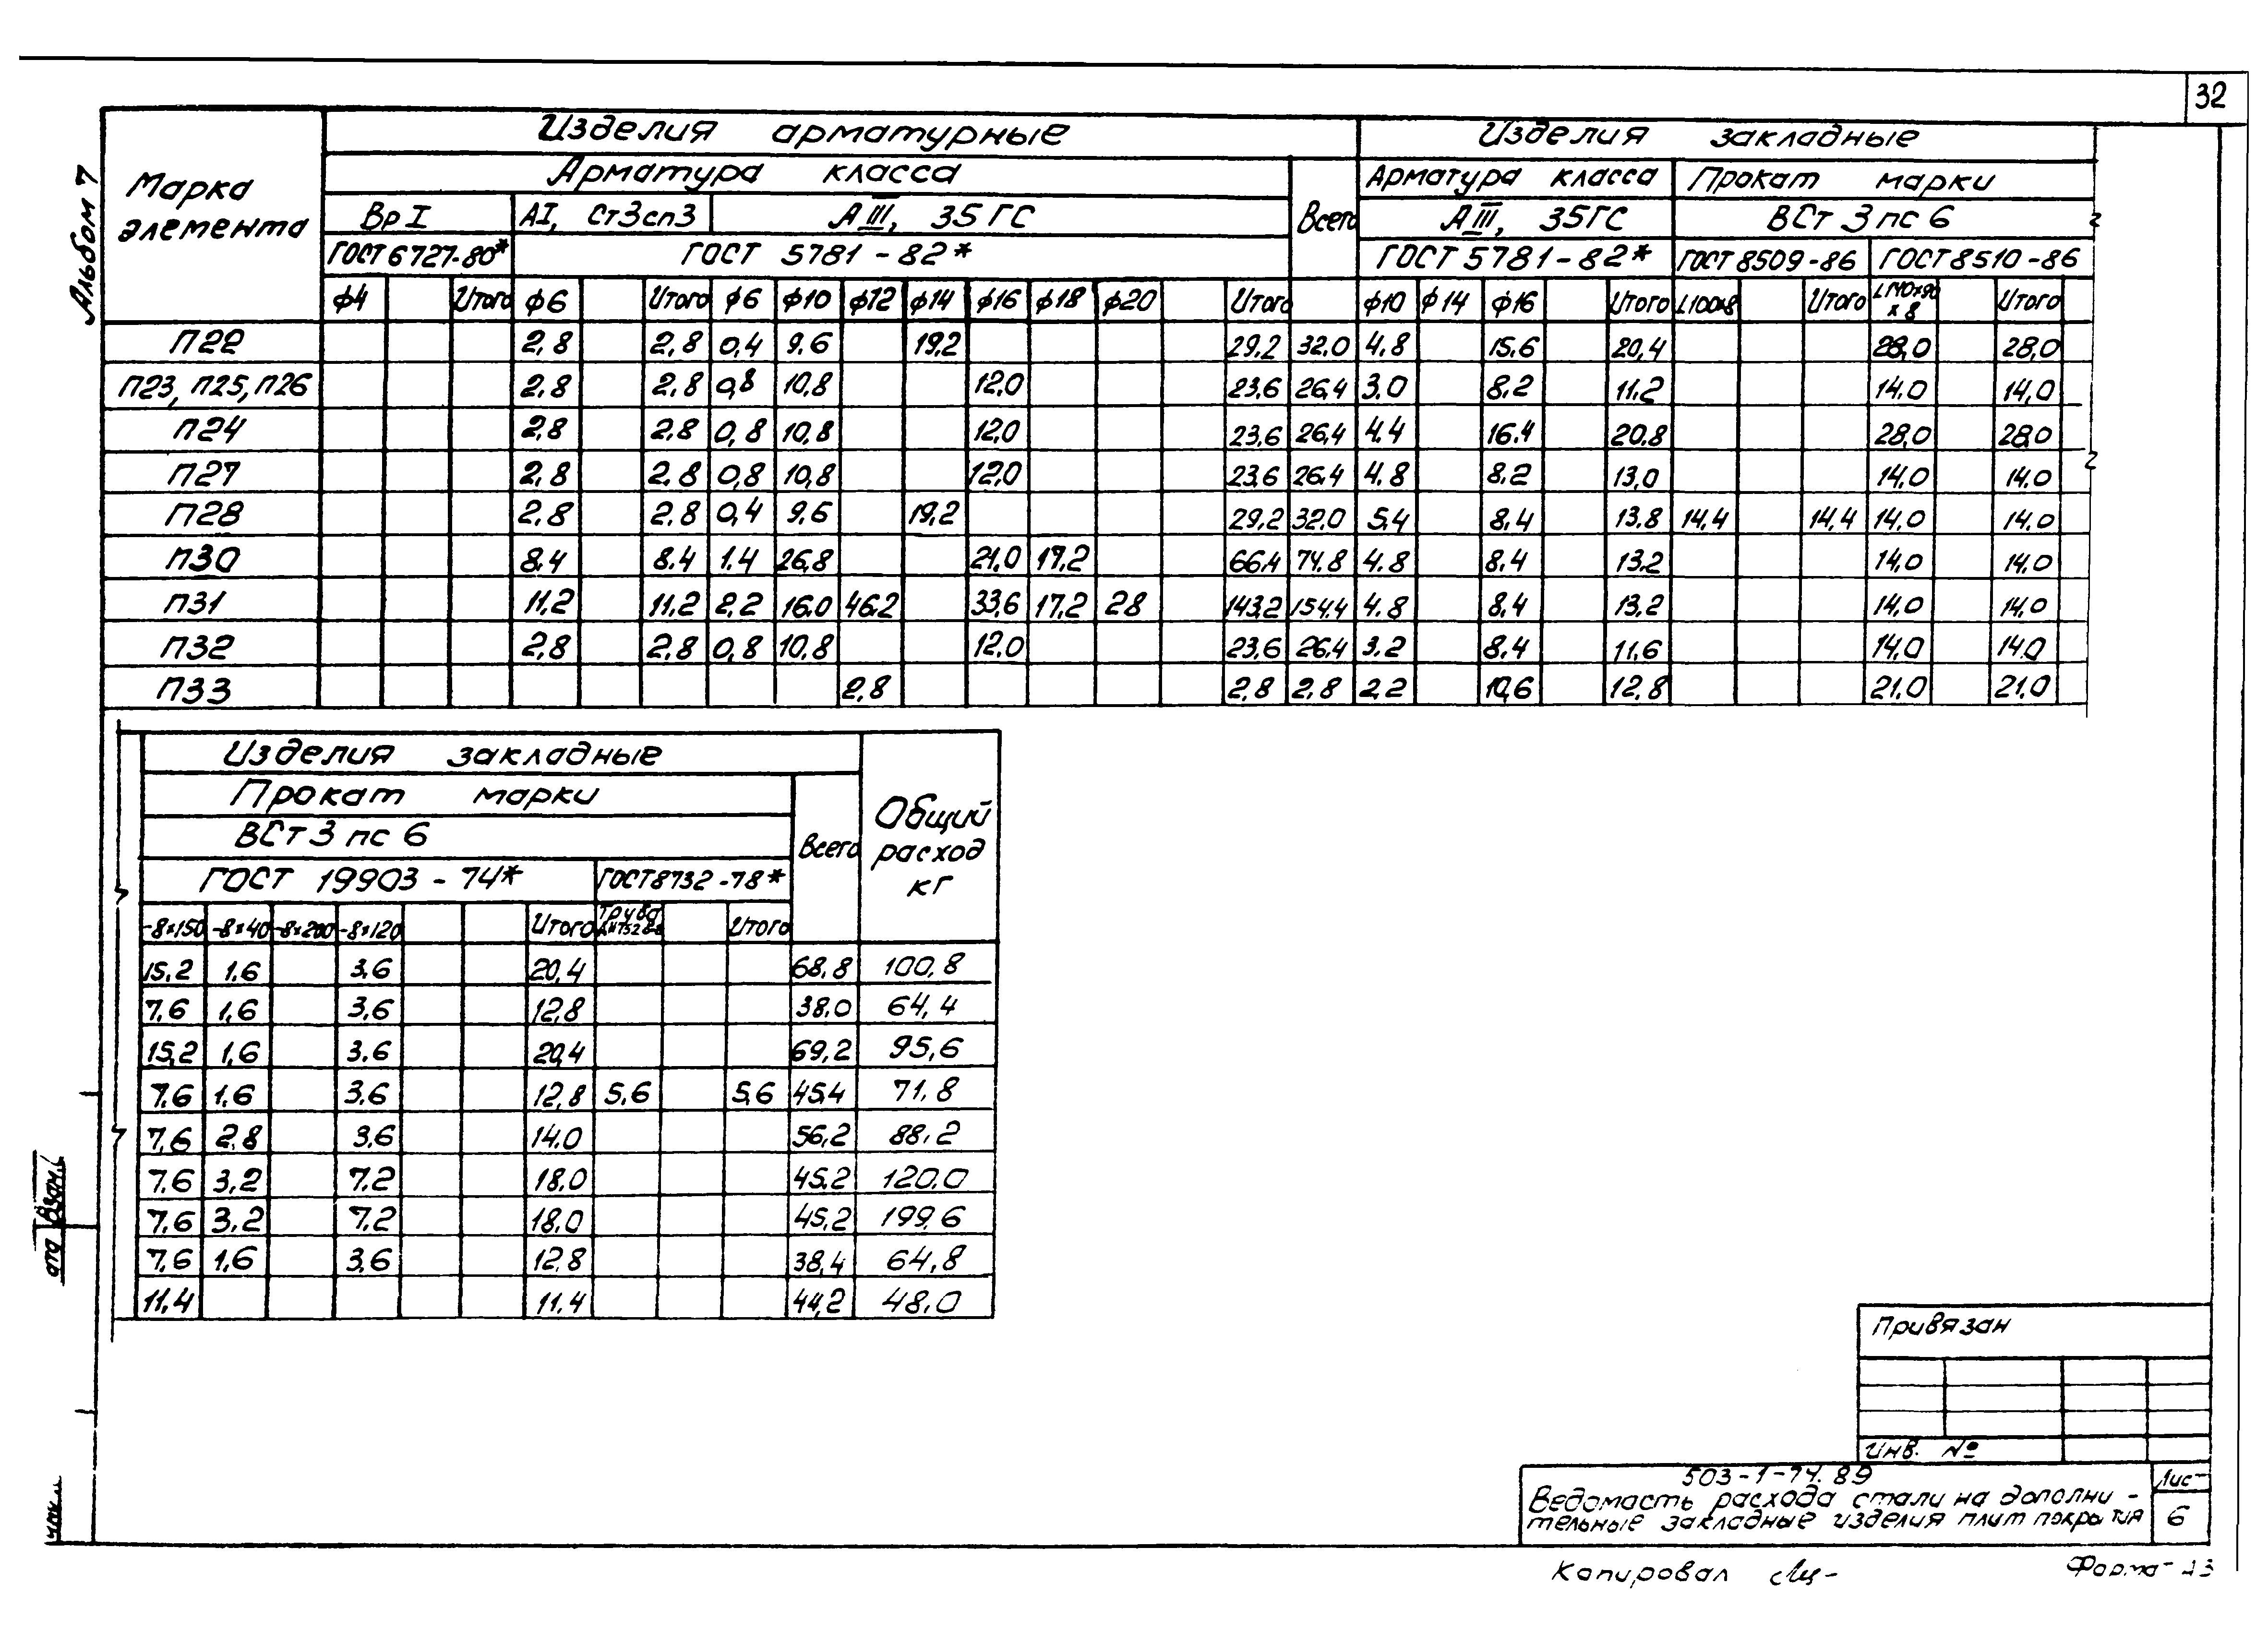 32
Альбом 7
Марка элемента
Изделия арматурные
Изделия закладные
Арматура класса
Всего
Арматура класса
Прокат марки
Вр I
АI, Ст3сп3
АIII, 35ГС
АIII, 35ГС
ВСт 3 пс 6
ГОСТ 6727-80*
ГОСТ 5781-82*
ГОСТ 5781-82*
ГОСТ 8509-86
ГОСТ 8510-86
ф4 Итого ф6 Итого ф6 ф10 ф12 ф14 ф16 ф18 ф20 Итого ф10 ф14 ф16 Итого L100х8 Итого L140х90х8 Итого
П22 2,8 2,8 0,4 9,6 19,2 29,2 32,0 4,8 15,6 20,4 28,0 28,0
П23, П25, П26 2,8 2,8 0,8 10,8 12,0 23,6 26,4 3,0 8,2 11,2 14,0 14,0
П24 2,8 2,8 0,8 10,8 12,0 23,6 26,4 4,4 16,4 20,8 28,0 28,0
П27 2,8 2,8 0,8 10,8 12,0 23,6 26,4 4,8 8,2 13,0 14,0 14,0
П28 2,8 2,8 0,4 9,6 19,2 29,2 32,0 5,4 8,4 13,8 14,4 14,4 14,0 14,0
П30 8,4 8,4 1,4 26,8 21,0 17,2 66,4 74,8 4,8 8,4 13,2 14,0 14,0
П31 11,2 11,2 2,2 16,0 46,2 33,6 17,2 28 143,2 154,4 4,8 8,4 13,2 14,0 14,0
П32 2,8 2,8 0,8 10,8 12,0 23,6 26,4 3,2 8,4 11,6 14,0 14,0
П33 2,8 2,8 2,8 2,2 10,6 12,8 21,0 21,0
Изделия закладные
Прокат марки
Всего
Общий расход кг
ВСт 3 пс 6
ГОСТ 19903-74*
ГОСТ 8732-78*
-8х150 -8х40 -8х200 -8х120 Итого Труба Итого
15,2 1,6 3,6 20,4 68,8 100,8
7,6 1,6 3,6 12,8 38,0 64,4
15,2 1,6 3,6 20,4 69,2 95,6
7,6 1,6 3,6 12,8 5,6 5,6 45,4 71,8
7,6 2,8 3,6 14,0 56,2 88,2
7,6 3,2 7,2 18,0 45,2 120,0
7,6 3,2 7,2 18,0 45,2 199,6
7,6 1,6 3,6 12,8 38,4 64,8
11,4 11,4 44,2 48,0
Взам.
ата
Привязан
Инв. №
503-1-74.89
Лис
Ведомасть расхода стали на дополни-
тельные закладные изделия плит покрытия
6
Копировал
Форма